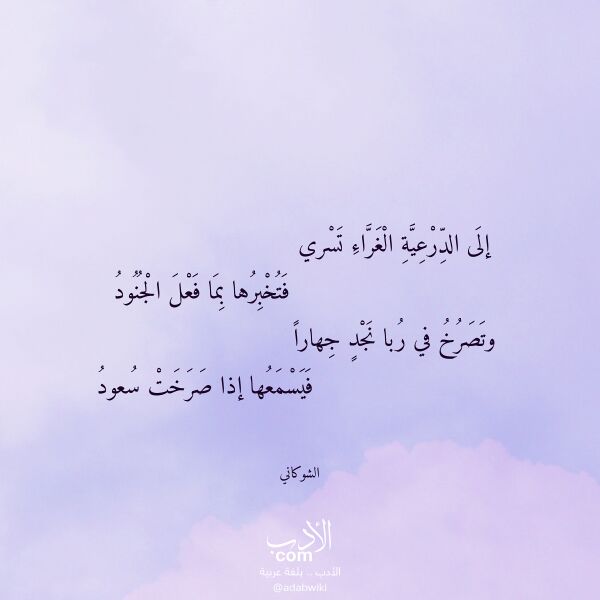 إلَى الدِّرْعِيَّةِ الْغَرَّاءِ تَسْري
فَتُخْبِرُها بِمَا فَعْلَ الْجُنُودُ
وتَصَرُخُ في رُبا نَجْدٍ جِهاراً
فَيَسْمَعُها إذا صَرَخَتْ سُعودُ
الشوكاني
الأدب
com
الأدب .. بلغة عربية
@adabwiki